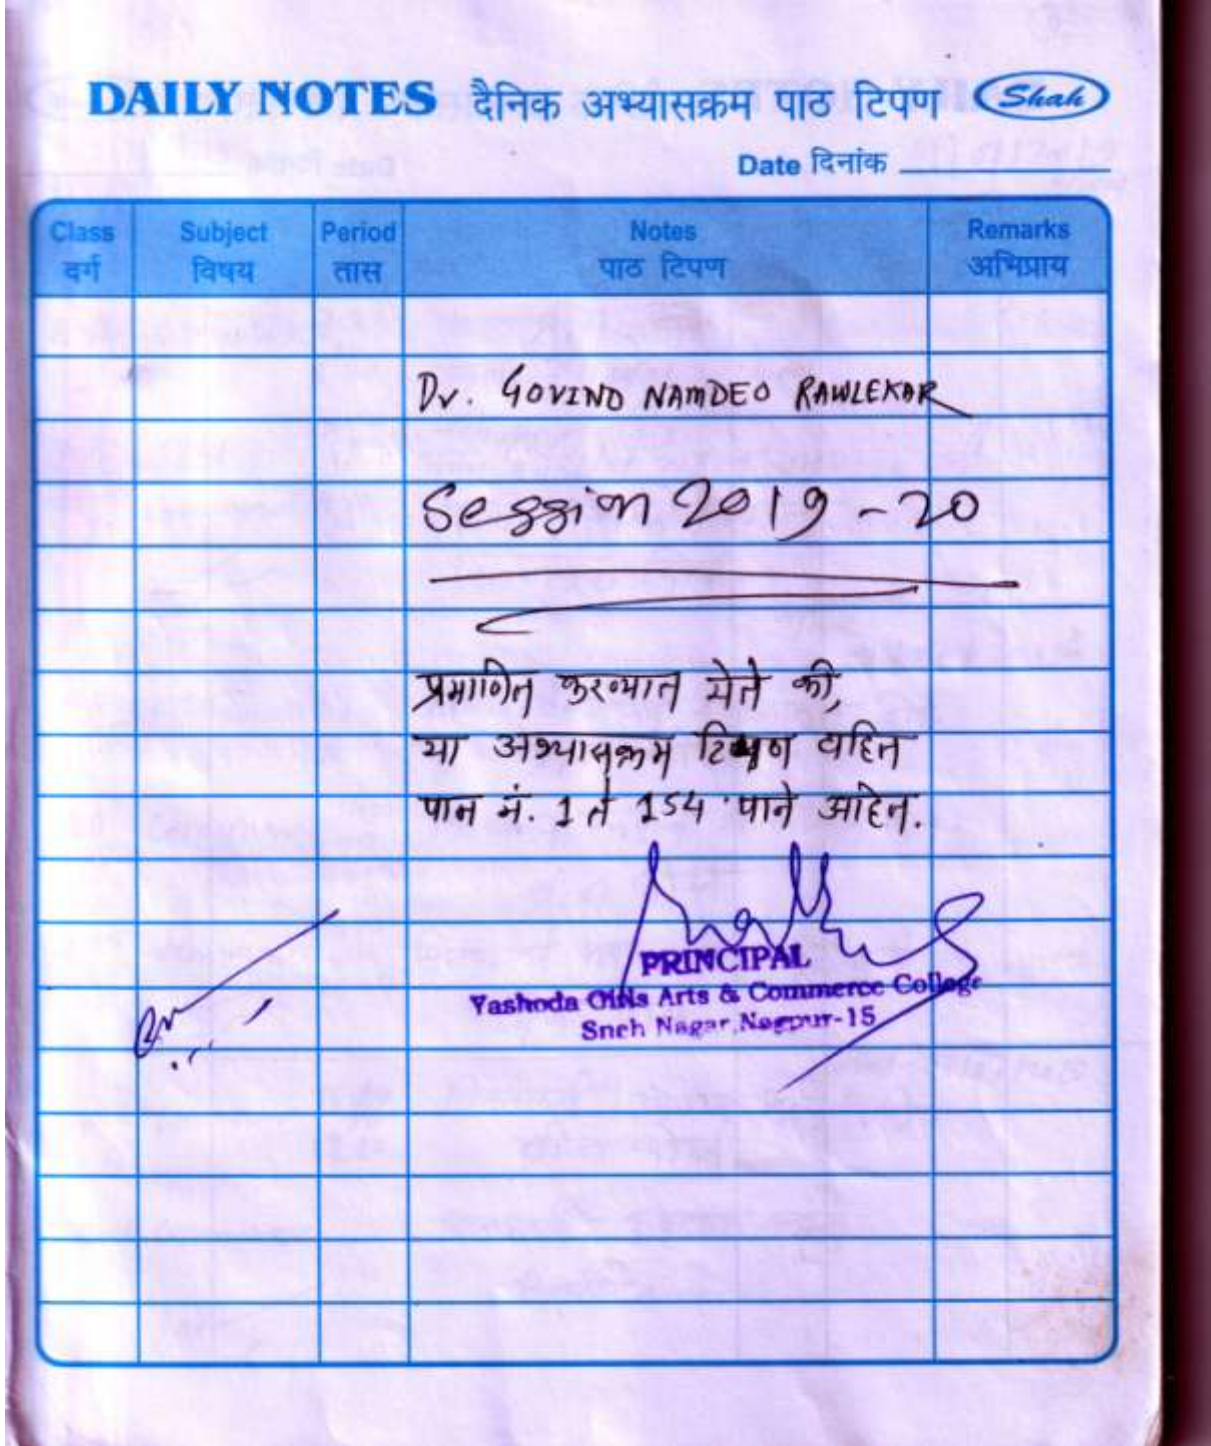 DAILY NOTES दैनिक अभ्यासक्रम पाठ टिपण Shah
Date दिनांक
Class Subject Period Notes Remarks
वर्ग विषय तास पाठ टिपण अभिप्राय
Dr. GOVIND NAMDEO RAWLEKAR
Session 2019-20
प्रमाणित करण्यात येते की,
या अभ्यासक्रम टिपण वहित
पान नं. 1 ते 154 पाने आहेत.
PRINCIPAL
Yashoda Girls Arts & Commerce College
Sneh Nagar, Nagpur-15